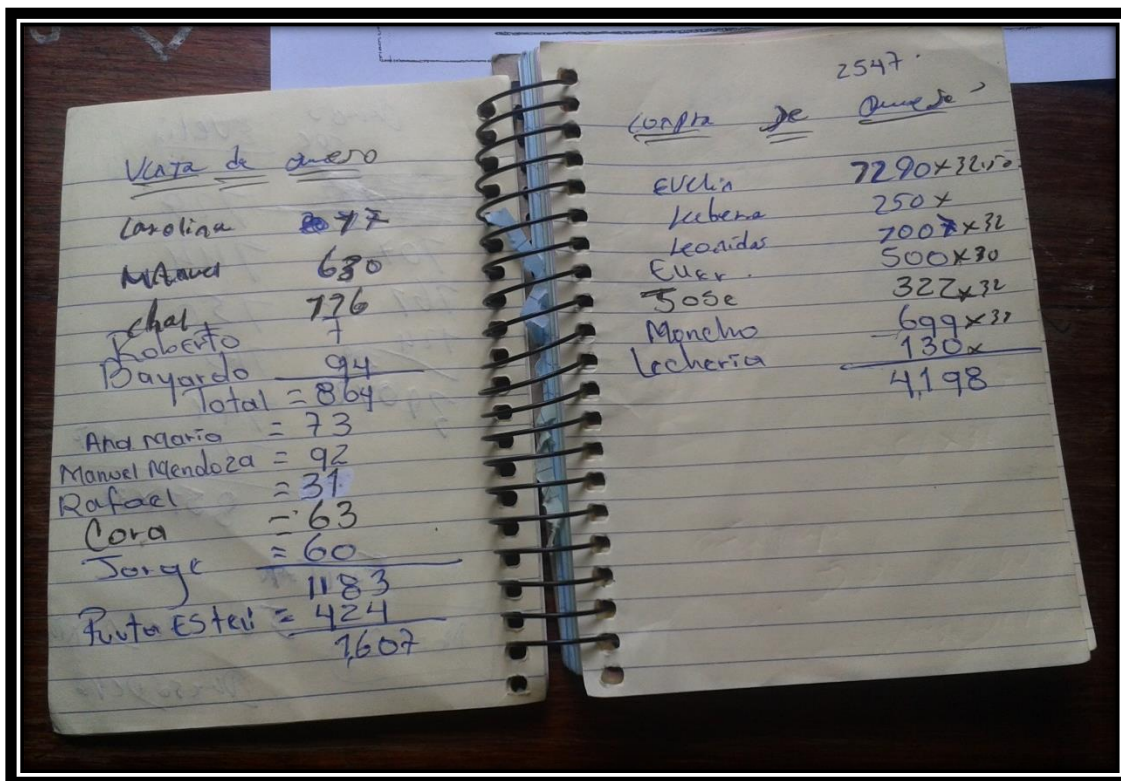 Venta de queso
Carolina 77
Manuel 630
Chal 776
Roberto 7
Bayardo 94
Total = 864
Ana Maria = 73
Manuel Mendoza = 92
Rafael = 31
Cora = 63
Jorge = 60
1183
Ruta Esteli = 424
1,607
2547.
Compra de queso
Evelin 7290x32.50
250x
Leonidas 7007x32
500x30
Jose 322x32
Moncho 699x32
Lecheria 130x
4,198